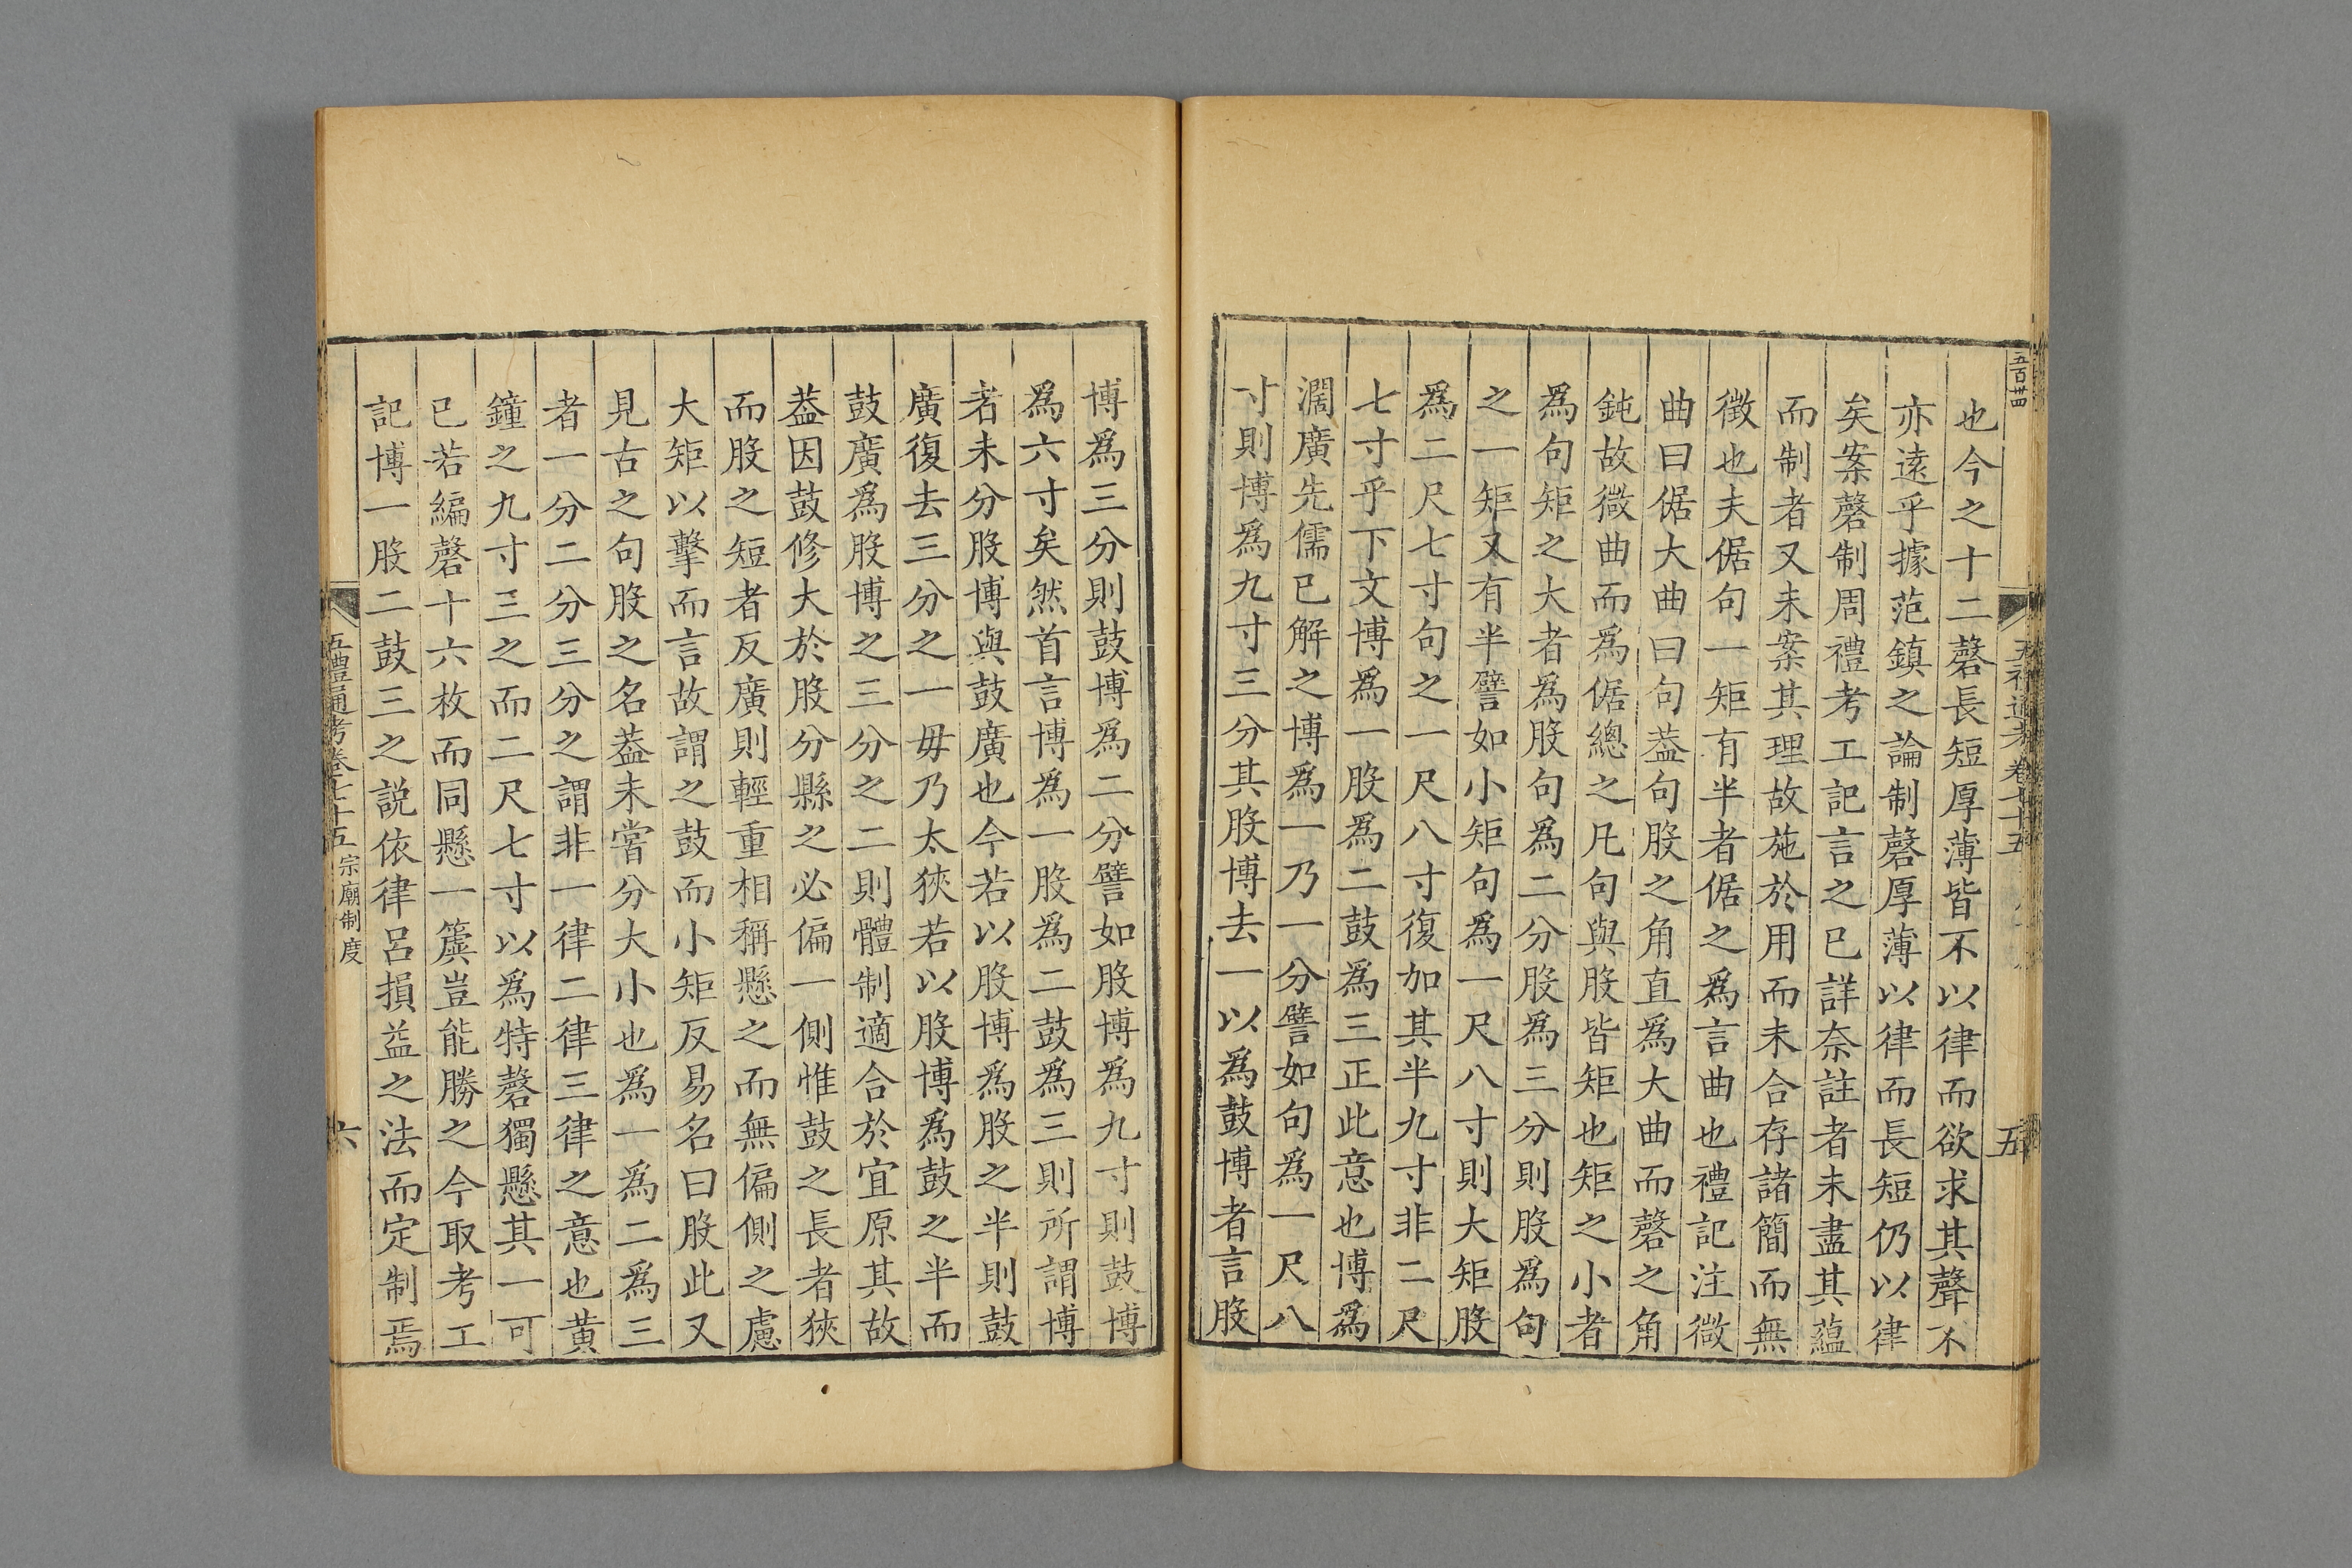 五百卅四
五禮通考卷七十五
五
也今之十二磬長短厚薄皆不以律而欲求其聲不
亦逺乎據范鎮之論制磬厚薄以律而長短仍以律
矣案磬制周禮考工記言之已詳奈註者未盡其蘊
而制者又未案其理故施於用而未合存諸簡而無
徴也夫倨句一矩有半者倨之爲言曲也禮記注微
曲曰倨大曲曰句葢句股之角直爲大曲而磬之角
鈍故微曲而爲倨總之凡句與股皆矩也矩之小者
爲句矩之大者爲股句爲二分股爲三分則股爲句
之一矩又有半譬如小矩句爲一尺八寸則大矩股
爲二尺七寸句之一尺八寸復加其半九寸非二尺
七寸乎下文博爲一股爲二鼓爲三正此意也博爲
濶廣先儒已解之博爲一乃一分譬如句爲一尺八
寸則博爲九寸三分其股博去一以爲鼓博者言股
博爲三分則鼓博爲二分譬如股博爲九寸則鼓博
爲六寸矣然首言博爲一股爲二鼓爲三則所謂博
者未分股博與鼓廣也今若以股博爲股之半則鼓
廣復去三分之一毋乃太狹若以股博爲鼓之半而
鼓廣爲股博之三分之二則體制適合於宜原其故
葢因鼓修大於股分縣之必偏一側惟鼓之長者狹
而股之短者反廣則輕重相稱懸之而無偏側之慮
大矩以擊而言故謂之鼓而小矩反易名曰股此又
見古之句股之名葢未嘗分大小也爲一爲二爲三
者一分二分三分之謂非一律二律三律之意也黄
鐘之九寸三之而二尺七寸以爲特磬獨懸其一可
已若編磬十六枚而同懸一簴豈能勝之今取考工
記博一股二鼓三之説依律呂損益之法而定制焉
五禮通考卷七十五
宗廟制度
六